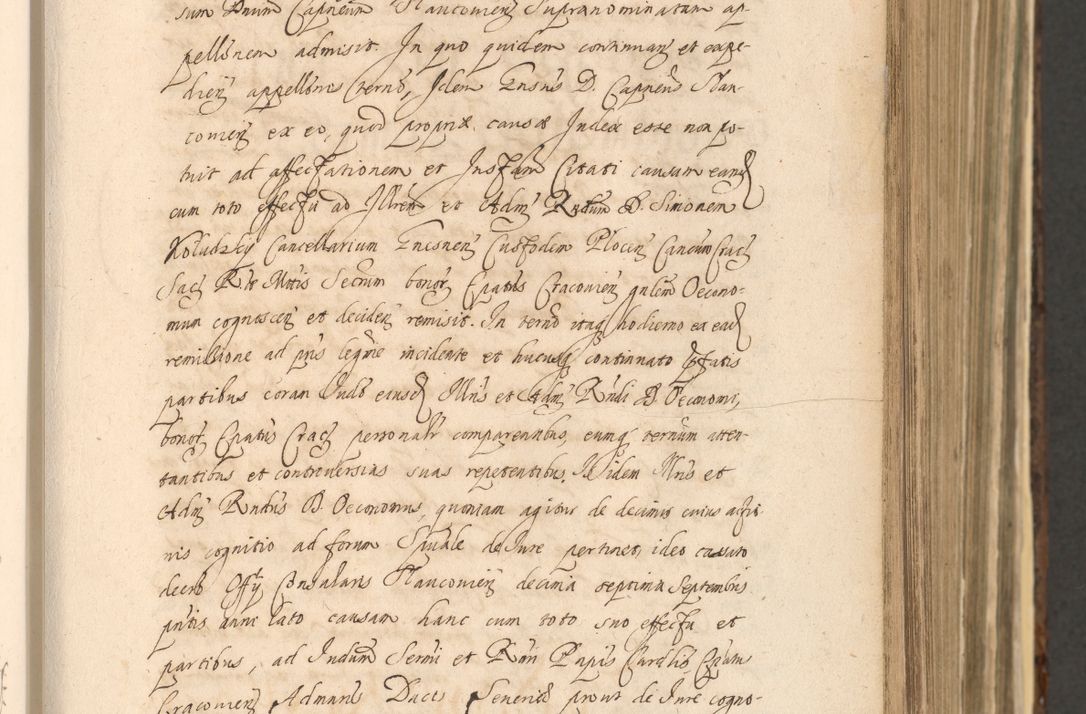 sum Dnum Capneum Slauconien Supranominatum ap-
pellonem admisit. In quo quidem continuan et expe-
dien appellonis termo, Idem Gnsus D. Capneus Slau-
conien ex eo, quod propriæ causæ Iudex esse non po-
tuit ad affectationem et Instam Citati causam eand
cum toto effectu ad Illrem et Adm Rndum D. Simonem
Koludzky Cancellarium Gnesnen Custodem Plocen Cancum Crac
Sac Rae Mttis Secrum bonor Epatus Cracovien gnlem Oecono-
mum cognoscen et deciden remisit. In termo itaq hodierno ex ead
remissione ad pns legme incidente et hucusq continuato Pfatis
partibus coram Iudo eiusd Illris et Adm Rndi D. Oeconomi,
bonor Epatus Crac personalr comparentibus, eumq terminum atten-
tantibus et controversias suas repetentibus. Idem Illris et
Adm Rndus D. Oeconomus, quoniam agitur de decimis cuius actio-
nis cognitio ad forum Spuale de Iure pertinet, ideo cassato
decto Offy Consularis Slauconien decima septima Septembris
pntis anni lato causam hanc cum toto suo effectu et
partibus, ad Iudum Sermi et Rmi Papis Cardlis Epatus
Cracovien Admnis Ducis Severien prout de Iure cogno-